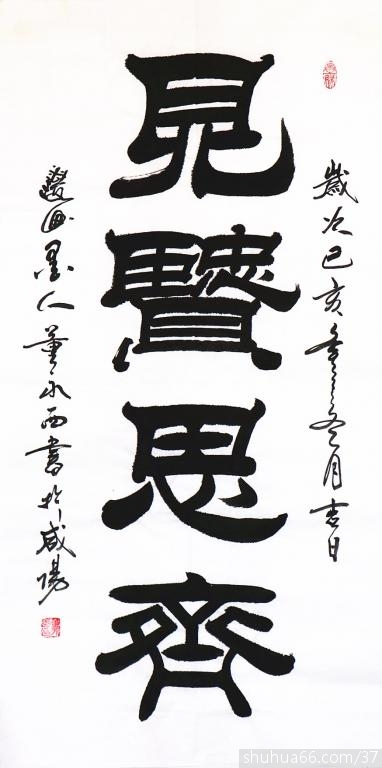 歲次己亥年冬月吉日
見賢思齊
墨人董永西書於咸陽
shuhua66.com/37